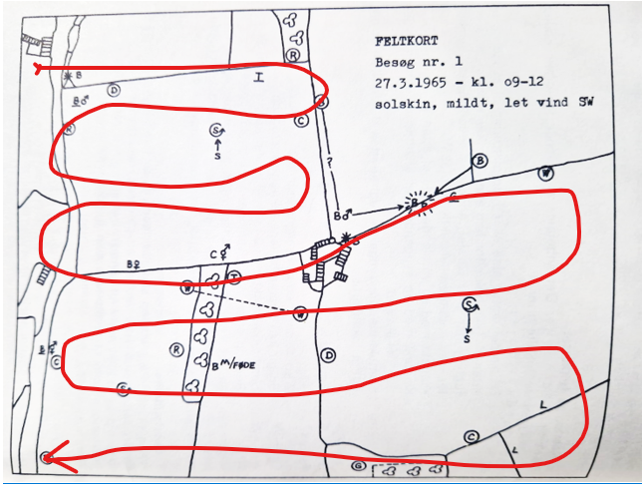 FELTKORT
Besøg nr. 1
27.3.1965 - kl. 09-12
solskin, mildt, let vind SW
R
B
D
I
B♂
R
S
S
C
?
B
W
B♂
B
C
B♀
C⚥
I
W
W
S
S
R
D
B m/FØDE
C
S
L
C
L
G